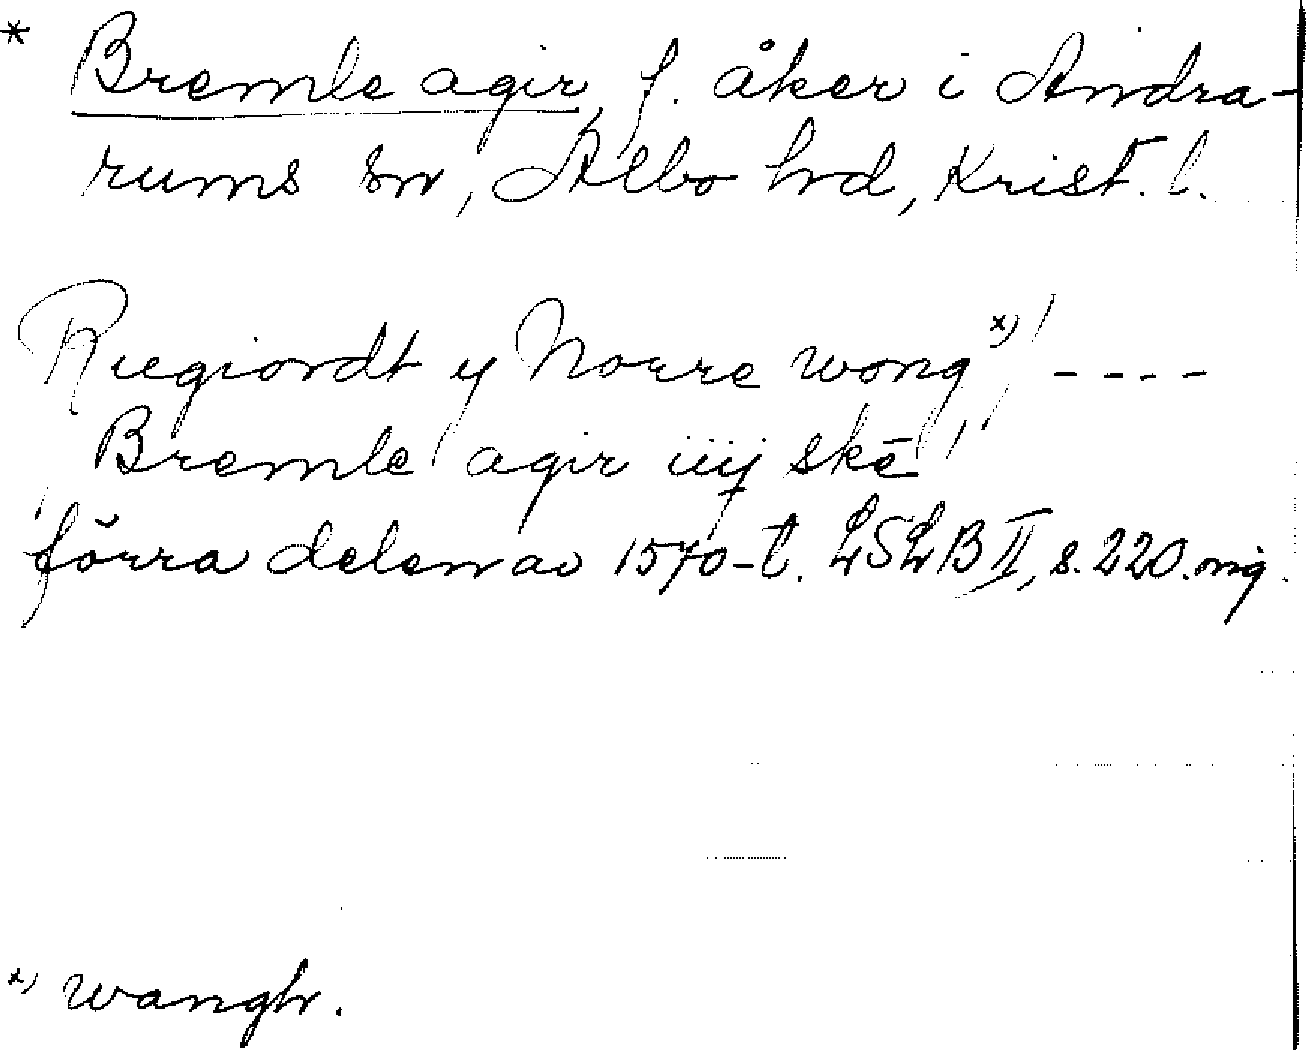 * Bremle agir, f. åker i Andra-
rums sn, Albo hd, Krist. l.
Rugiordt y Norre wong x) / - - - -
Bremle agir iiij skē /
förra delen av 1570-t. LSLB II, s. 220. orig.
x) wangh.